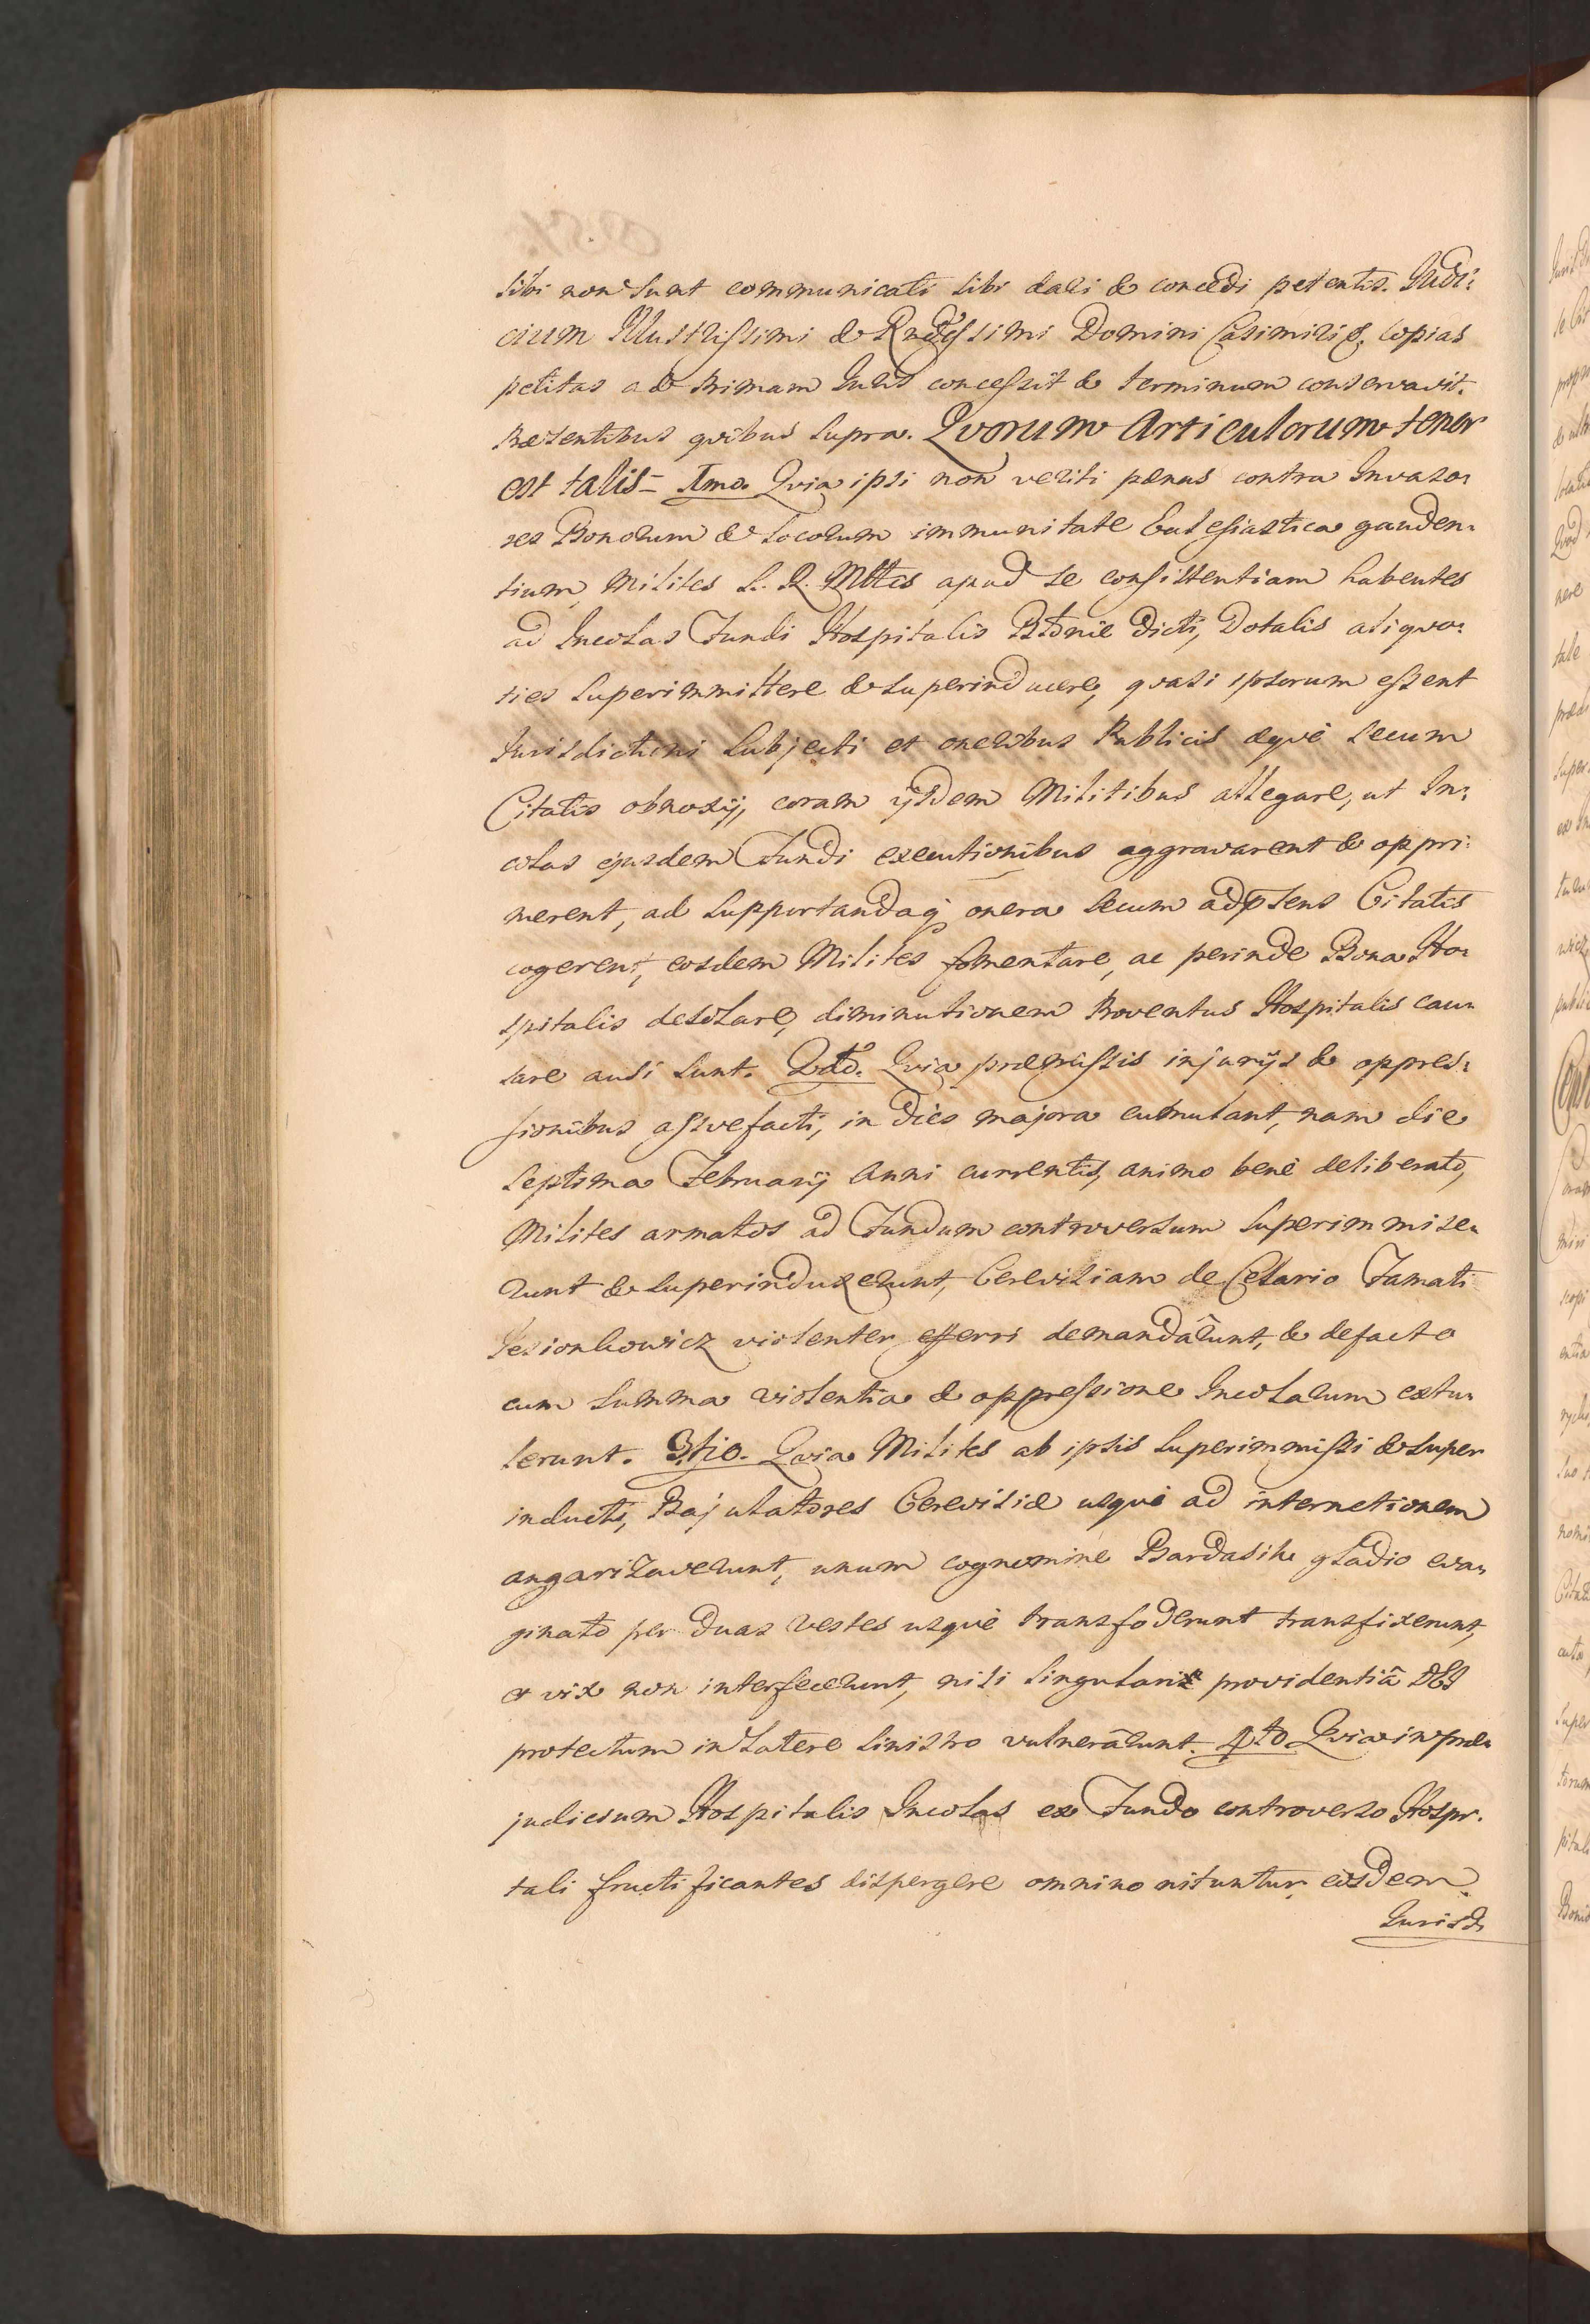 sibi non sunt communicati sibi dari & concedi petentis. Judi:
cium Illustrissimi & Rndissimi Domini Casimiri &. copias
petitas ad primam Juris concessit & terminum conservavit.
Præsentibus qvibus supra. Qvorum Articulorum tenor
est talis = Imo. Qvia ipsi non veriti pænas contra Invaso:
res Bonorum & Locorum immunitate Ecclesiastica gauden:
tium, Milites S. R. Mttis apud se consistentiam habentes
ad Incolas Fundi Hospitalis dicti, Dotalis aliqvo:
ties superimmittere & superinducere, qvasi ipsorum essent
Jurisdictioni subjecti et oneribus Publicis æqvè secum
Citatis obnoxij, coram ijsdem Militibus allegare, ut In:
colas ejusdem Fundi executionibus aggravarent & oppri:
merent, ad supportandaq onera secum Citatis
cogerent, eosdem Milites fomentare, ac perinde Bona Ho:
spitalis desolare, diminutionem Proventus Hospitalis cau:
sare ausi sunt. 2do. Qvia præmissis injurijs & oppres:
sionibus assvefacti, in dies majora cumulant, nam die
septima Februarij Anni currentis, animo benè deliberato,
Milites armatos ad Fundum controversum superimmise:
runt & superinduxerunt, Cerevisiam de Celario Famati
Jezionkowicz violenter efferri demandârunt, & defacto
cum summa violentia & oppressione Incolarum extu:
lerunt. 3tio. Qvia Milites ab ipsis superimmissi & super
inducti, Bajulatores Cerevisiæ usqvè ad internetionem
angarizaverunt, unum cognomine Bardasik gladio eva:
ginato per duas vestes usqvè transfoderunt transfixerunt,
et vix non interfecerunt, nisi singulari providentiâ DEI
protectum in latere sinistro vulnerârunt. 4to Qvia in præ:
judicium Hospitalis Incolas ex Fundo controverso Hospi:
tali fructificantes dispergere omnino nituntur, eosdem
Jurisd.